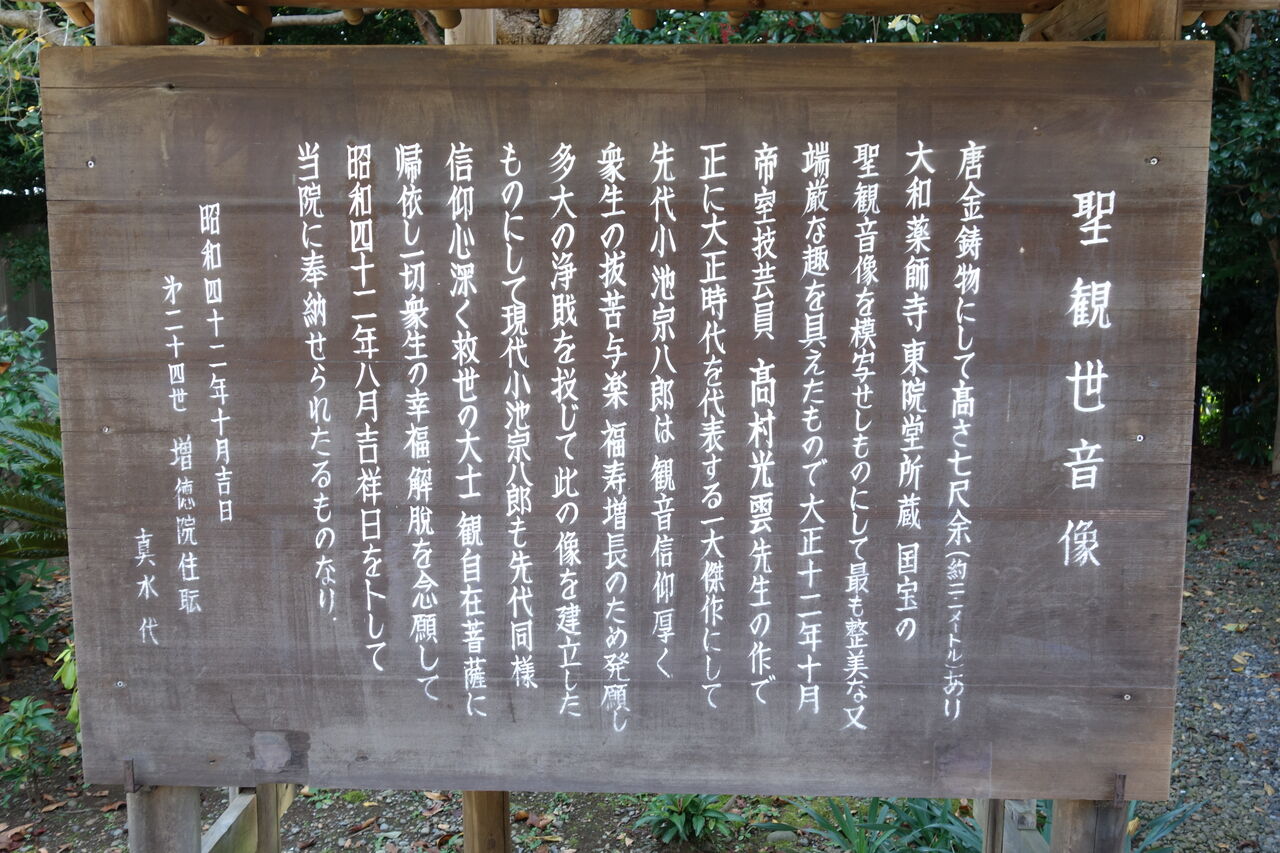 聖観世音像
唐金鋳物にして髙さ七尺余（約二二メートル）あり
大和薬師寺東院堂所蔵 国宝の
聖観音像を模写せしものにして最も整美な又
端厳な趣を具えたもので大正十二年十月
帝室技芸員 髙村光雲先生の作で
正に大正時代を代表する一大傑作にして
先代小池宗八郎は観音信仰厚く
衆生の抜苦与楽 福寿増長のため発願し
多大の浄戝を投じて此の像を建立した
ものにして現代小池宗八郎も先代同様
信仰心深く救世の大士 観自在菩薩に
帰依し一切衆生の幸福解脱を念願して
昭和四十二年八月吉祥日を卜して
当院に奉納せられたるものなり.
昭和四十二年十月吉日
第二十四世 増徳院住職
真水代